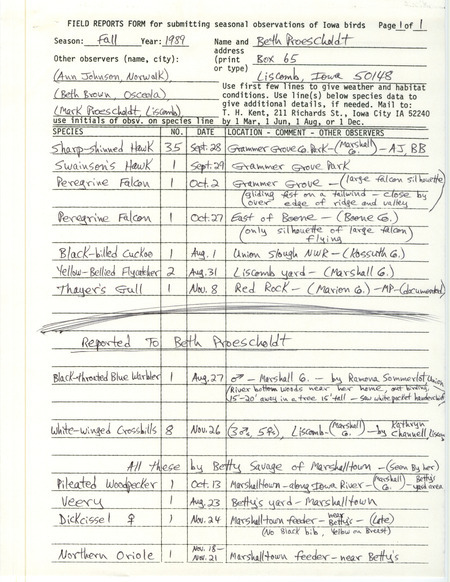 FIELD REPORTS FORM for submitting seasonal observations of Iowa birds Page 1 of 1
Season: Fall Year: 1989 Name and Beth Proescholdt
address
Other observers (name, city): (print Box 65
or type)
(Ann Johnson, Norwalk) Liscomb, Iowa 50148
(Beth Brown, Osceola) Use first few lines to give weather and habitat
conditions. Use line(s) below species data to
(Mark Proescholdt, Liscomb) give additional details, if needed. Mail to:
T. H. Kent, 211 Richards St., Iowa City IA 52240
use initials of obsv. on species line by 1 Mar, 1 Jun, 1 Aug, or 1 Dec.
SPECIES NO. DATE LOCATION - COMMENT - OTHER OBSERVERS
Sharp-shinned Hawk 35 Sept. 28 Grammer Grove Co. Park-(Marshall Co.)-AJ, BB
Swainson's Hawk 1 Sept. 29 Grammer Grove Park
Peregrine Falcon 1 Oct. 2 Grammer Grove - (large falcon silhouette
gliding fast on a tailwind - close by
over edge of ridge and valley)
Peregrine Falcon 1 Oct. 27 East of Boone - (Boone Co.)
(only silhouette of large falcon)
flying
Black-billed Cuckoo 1 Aug. 1 Union Slough NWR - (Kossuth Co.)
Yellow-Bellied Flycatcher 2 Aug. 31 Liscomb yard - (Marshall Co.)
Thayer's Gull 1 Nov. 8 Red Rock - (Marion Co.) - MP-(documented)
Reported To Beth Proescholdt
Black-throated Blue Warbler 1 Aug. 27 ♂ - Marshall Co. - by Ramona Sommerlot, Union
(River bottom woods near her home, out birding,
15'-20' away in a tree 15' tall - saw white pocket handkerchief)
White-winged Crossbills 8 Nov. 26 (3♂s, 5♀s), Liscomb-(Marshall Co.)-by Kathryn
Channell, Liscomb
All these by Betty Savage of Marshalltown - (Seen By her)
Pileated Woodpecker 1 Oct. 13 Marshalltown-along Iowa River-(Marshall Co.)-Betty's
yard area
Veery 1 Aug. 23 Betty's yard - Marshalltown
Dickcissel ♀ 1 Nov. 24 Marshalltown feeder - near Betty's - (Late)
(No Black bib, Yellow on Breast)
Northern Oriole 1 Nov. 18-Nov. 21 Marshalltown feeder - near Betty's